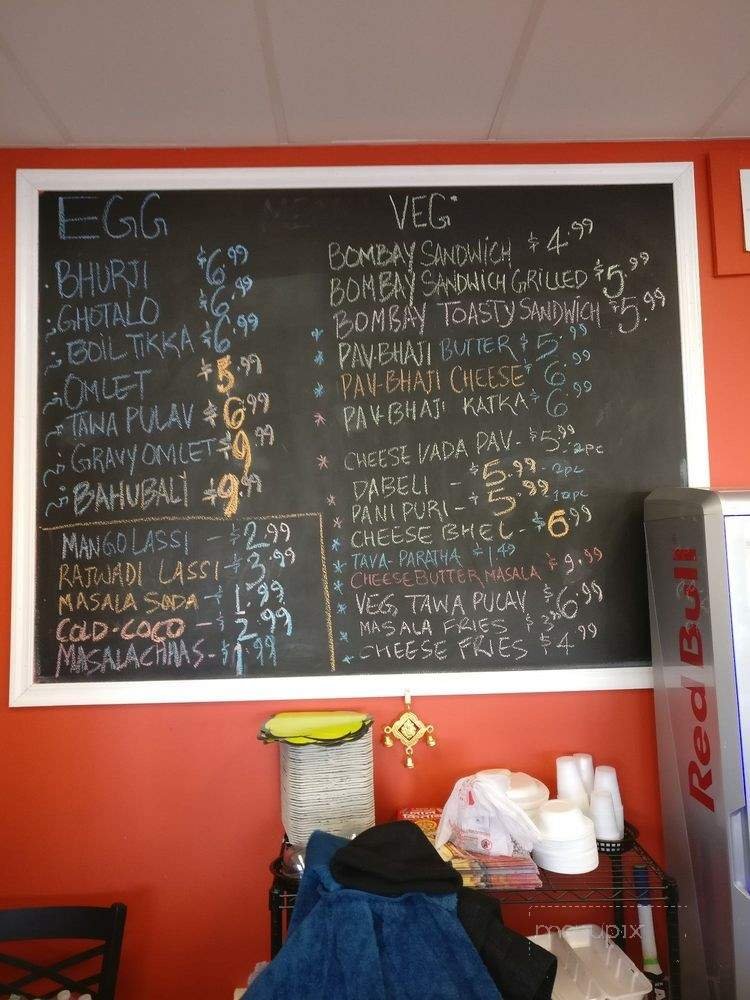 EGG
BHURJI $6.99
GHOTALO $6.99
BOIL TIKKA $6.99
OMLET $5.99
TAWA PULAV $6.99
GRAVY OMLET $9.99
BAHUBALI $9.99
MANGO LASSI - $2.99
RAJWADI LASSI - $3.99
MASALA SODA - $1.99
COLD-COCO - $2.99
MASALA CHAAS - $1.99
VEG
BOMBAY SANDWICH $4.99
BOMBAY SANDWICH GRILLED $5.99
BOMBAY TOASTY SANDWICH $5.99
PAV-BHAJI BUTTER $5.99
PAV-BHAJI CHEESE $6.99
PAV-BHAJI KATKA $6.99
CHEESE VADA PAV - $5.99 - 2pc
DABELI - $5.99 - 2pc
PANI PURI - $5.99 - 10pc
CHEESE BHEL - $6.99
TAVA-PARATHA $1.49
CHEESE BUTTER MASALA $9.99
VEG. TAWA PULAV $6.99
MASALA FRIES $3.99
CHEESE FRIES $4.99
Red Bull